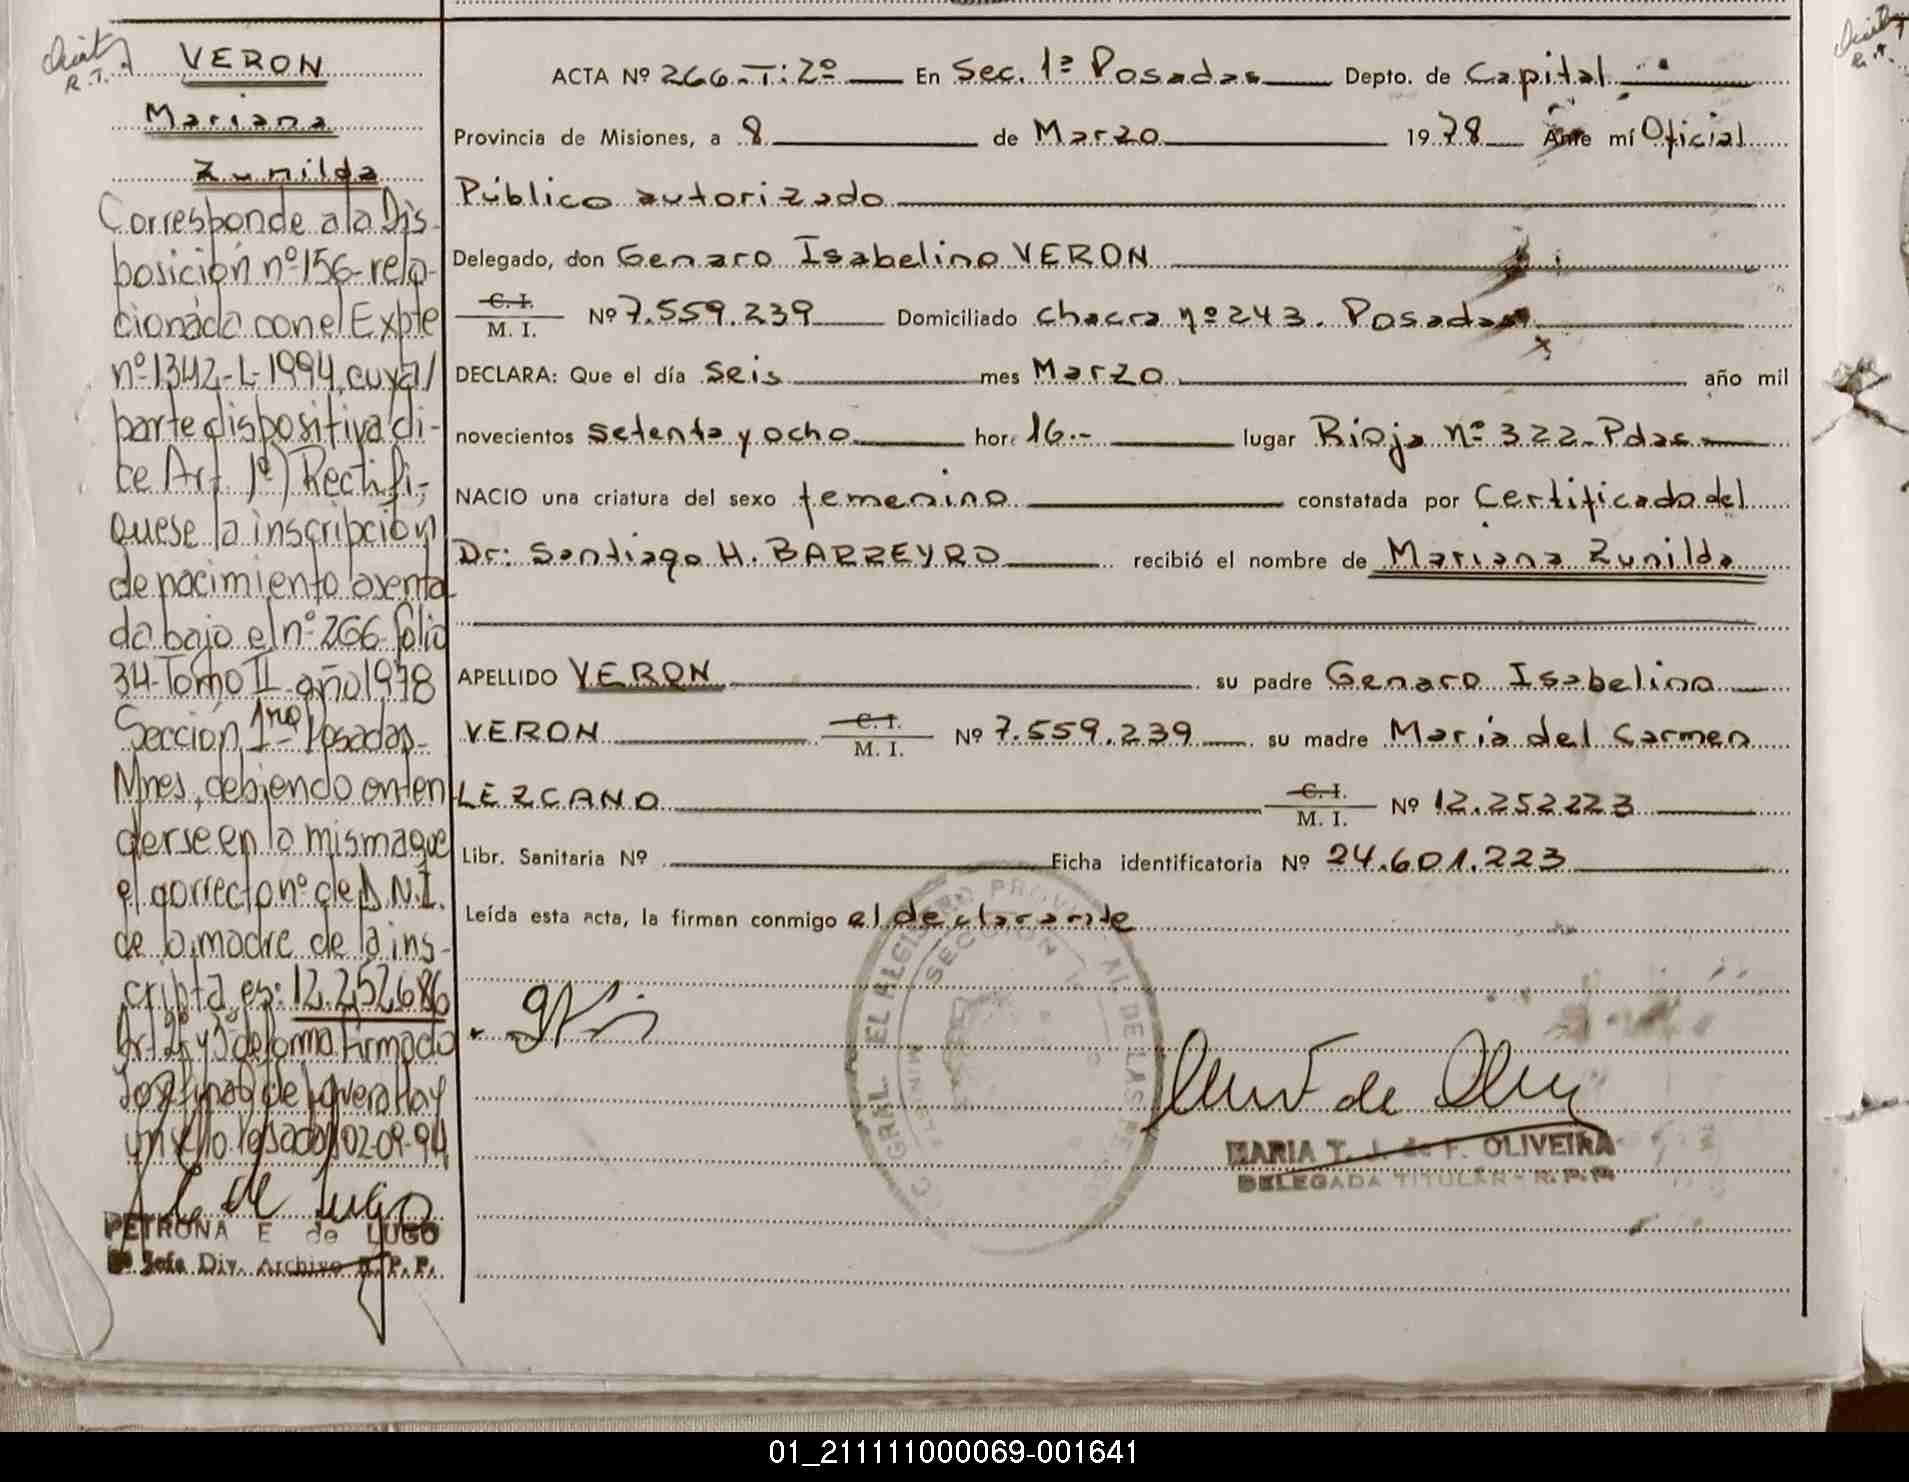 VERON
Mariana
Zunilda
Corresponde a la Dis-
posición nº 156- rela-
cionada con el Expte
nº 1342-L-1994, cuya/
parte dispositiva di-
ce Art 1º) Rectifí-
quese la inscripción
de nacimiento asenta
da bajo el nº 266 folio
34-Tomo II- año 1978
Sección 1ra Posadas-
Mnes, debiendo enten
derse en la misma que
el correcto nº de D.N.I.
de la madre de la ins-
cripta es: 12.252.686
Art 2º y 3º de forma Firmado
de Hay
un sello. Posadas 02-09-94
PETRONA E de LUGO
Jefa Div. Archivo R. P. P.
ACTA Nº 266-T:2º En Sec. 1ª Posadas Depto. de Capital
Provincia de Misiones, a 8 de Marzo 1978 Ante mí Oficial
Público autorizado
Delegado, don Genaro Isabelino VERON
C. I.
M. I. Nº 7.559.239 Domiciliado chacra nº 243. Posadas
DECLARA: Que el día seis mes Marzo año mil
novecientos setenta y ocho hora 16.- lugar Rioja nº 322-Pdas
NACIO una criatura del sexo femenino constatada por Certificado del
Dr: Santiago H. BARREYRO recibió el nombre de Mariana Zunilda
APELLIDO VERON su padre Genaro Isabelino
VERON C. I.
M. I. Nº 7.559.239 su madre Maria del Carmen
LEZCANO C. I.
M. I. Nº 12.252223
Libr. Sanitaria Nº Ficha identificatoria Nº 24.601.223
Leída esta acta, la firman conmigo el declarante
MARIA T. J. de F. OLIVEIRA
DELEGADA TITULAR - R. P. P.
01_211111000069-001641